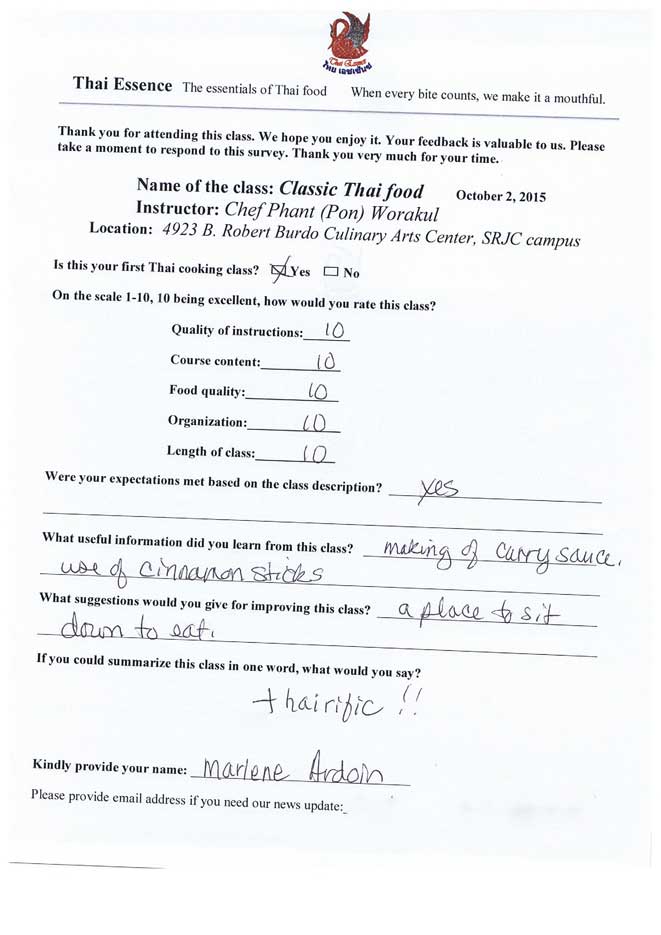 Thai Essence
ไทย เอสเซ้นซ์
Thai Essence The essentials of Thai food When every bite counts, we make it a mouthful.
Thank you for attending this class. We hope you enjoy it. Your feedback is valuable to us. Please
take a moment to respond to this survey. Thank you very much for your time.
Name of the class: Classic Thai food October 2, 2015
Instructor: Chef Phant (Pon) Worakul
Location: 4923 B. Robert Burdo Culinary Arts Center, SRJC campus
Is this your first Thai cooking class? Yes No
On the scale 1-10, 10 being excellent, how would you rate this class?
Quality of instructions: 10
Course content: 10
Food quality: 10
Organization: 10
Length of class: 10
Were your expectations met based on the class description? yes
What useful information did you learn from this class? making of curry sauce.
use of cinnamon sticks
What suggestions would you give for improving this class? a place to sit
down to eat.
If you could summarize this class in one word, what would you say?
thairific !!
Kindly provide your name: Marlene Ardoin
Please provide email address if you need our news update: